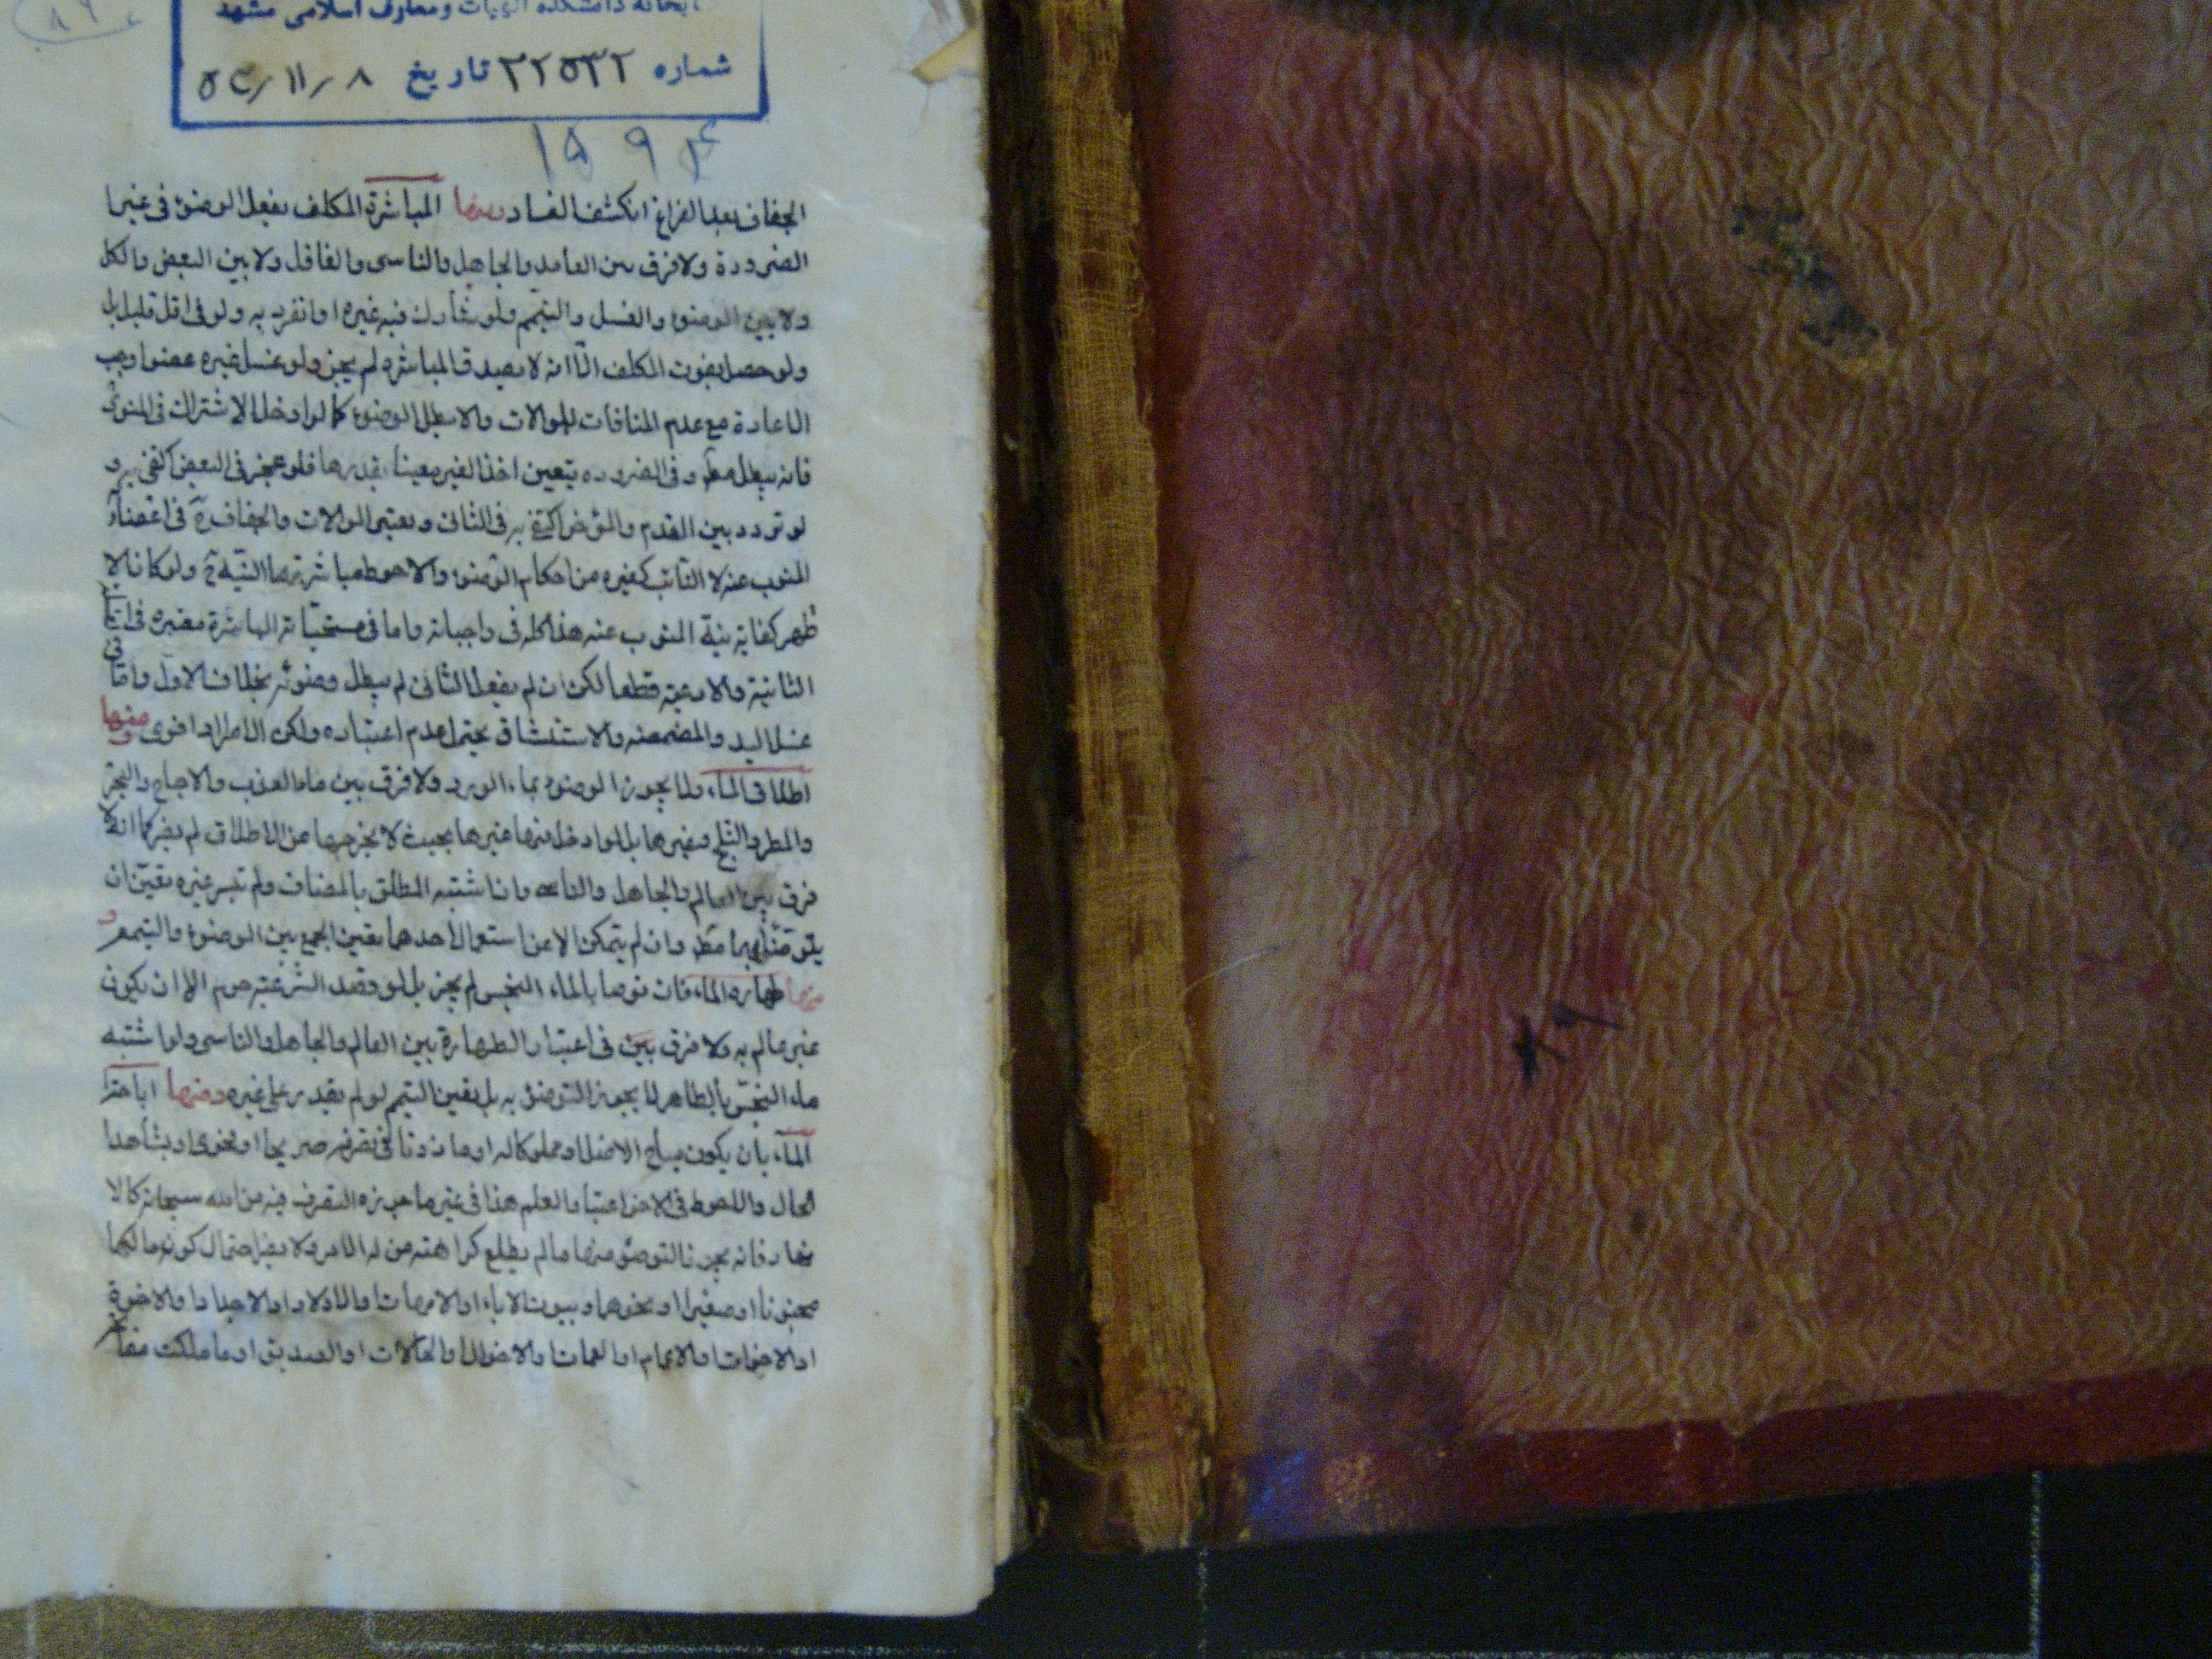 کتابخانه دانشکده الهیات و معارف اسلامی مشهد
شماره ۲۲۵۳۲ تاریخ ۸ / ۱۱ / ۵۴
الجفاف بعد الفراغ انکشف الفساد ومنها المباشرة المکلف بفعل الوضوء فی غیر
الضرورة ولا فرق بین العامد والجاهل والناسی والغافل ولا بین البعض والکل
ولا بین الوضوء والغسل والتیمم ولو شارک فیه غیره او انفرد به ولو فی اقل قلیل بل
ولو حصل بقوت المکلف الّا انه لا یصدق المباشره لم یجز ولو غسل غیره عضوا وجب
الاعادة مع عدم المنافات للموالات والا بطل الوضوء کما لو ادخل الاشتراک فی المنوی
فانه یبطل مط وفی الضروره یتعین اخذ الغیر معینا بقدرها فلو عجز فی البعض اکتفی به و
لو تردد بین المقدم والمؤخر اکتفی به فی الثانی ویعتبر الموالات والجفاف ح فی اعضاء
المنوب عنه لا النائب کغیره من احکام الوضوء والاحوط مباشرتهما النیة ح ولو کان الا
ظهر کفایة نیة المنوب عنه هذا کله فی واجباته واما فی مستحباته المباشرة معتبره فی
الثانیة والادعیه قطعا لکن ان لم یفعل الثانی لم یبطل وضوئه بخلاف الاول واما فی
غسل الید والمضمضه والاستنشاق یحتمل عدم اعتباره ولکن الاطراد اقوی ومنها
اطلاق الماء ولا یجوز الوضوء بماء الورد ولا فرق بین ماء العذب والاجاج والبحر
والمطر والثلج وغیرها بل لو ادخل منها غیرها بحیث لا یخرجها عن الاطلاق لم یضر کما انه لا
فرق بین العالم والجاهل والناسی وان اشتبه المطلق بالمضاف ولم تیسر غیره تعین ان
یتوضأ بهما مط وان لم یتمکن الا من استعمال احدهما تعین الجمع بین الوضوء والتیمم و
منها طهاره الماء فان توضا بالماء النجس لم یجز بل لو قصد الشرعیه حرم الا ان یکون
غیر عالم به ولا فرق بین فی اعتبار الطهارة بین العالم والجاهل والناسی ولو اشتبه
ماء النجس بالطاهر لا یجوز التوضئ به بل تعین التیمم لو لم یقدر علی غیره ومنها اباحة
الماء بان یکون مباح الاصل او مملوکا له او ماذونا فی تصرفه صریحا او فحوی او بشاهد
الحال والاحوط فی الاخر اعتبار العلم هذا فی غیر ما جوزه التصرف فیه من الله سبحانه کالا
نهار فانه یجوز التوضؤ منها ما لم یطلع کراهته من له الامر ولا یضر احتمال کونه مالکها
مجنونا او صغیرا او نحوهما وبیوت الاباء او الامهات او الاولاد او الاجداد او الاخوة
او الاخوات او الاعمام او العمات والاخوال والخالات او الصدیق او ما ملکت مفاتحه